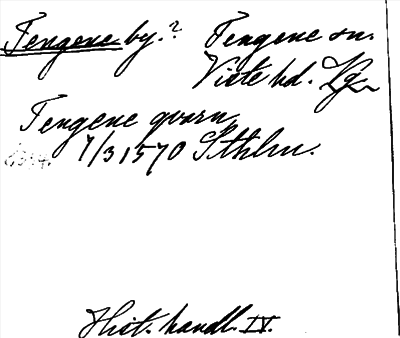 Tengene by.? Tengene sn.
Viste hd. Vg.
Tengene qvarn,
7/3 1570 Sthlm.
Hist. handl. IV.